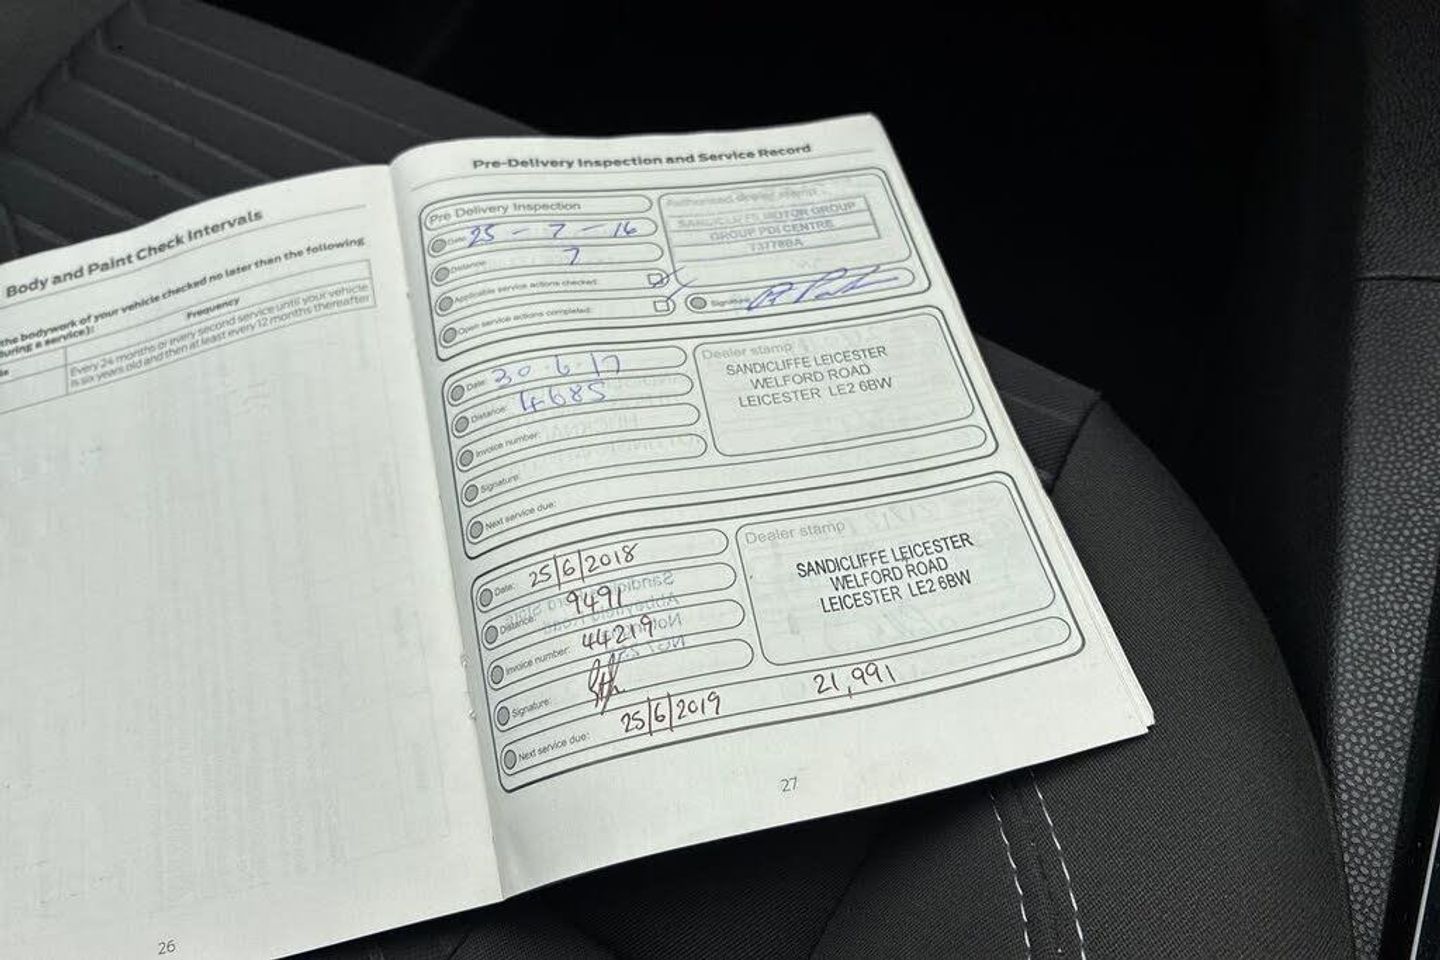 Body and Paint Check Intervals
the bodywork of your vehicle checked no later than the following
during a service):
Frequency
Every 24 months or every second service until your vehicle
is six years old and then at least every 12 months thereafter
26
Pre-Delivery Inspection and Service Record
Pre Delivery Inspection
Date: 25 - 7 - 16
Distance: 7
Applicable service actions checked:
Open service actions completed:
Authorised dealer stamp
SANDICLIFFE MOTOR GROUP
GROUP PDI CENTRE
Signature:
Date: 30 . 6 . 17
Distance: 4685
Invoice number:
Signature:
Next service due:
Dealer stamp
SANDICLIFFE LEICESTER
WELFORD ROAD
LEICESTER LE2 6BW
Date: 25/6/2018
Distance: 9491
Invoice number: 44219
Signature:
Next service due: 25/6/2019 21,991
Dealer stamp
SANDICLIFFE LEICESTER
WELFORD ROAD
LEICESTER LE2 6BW
27